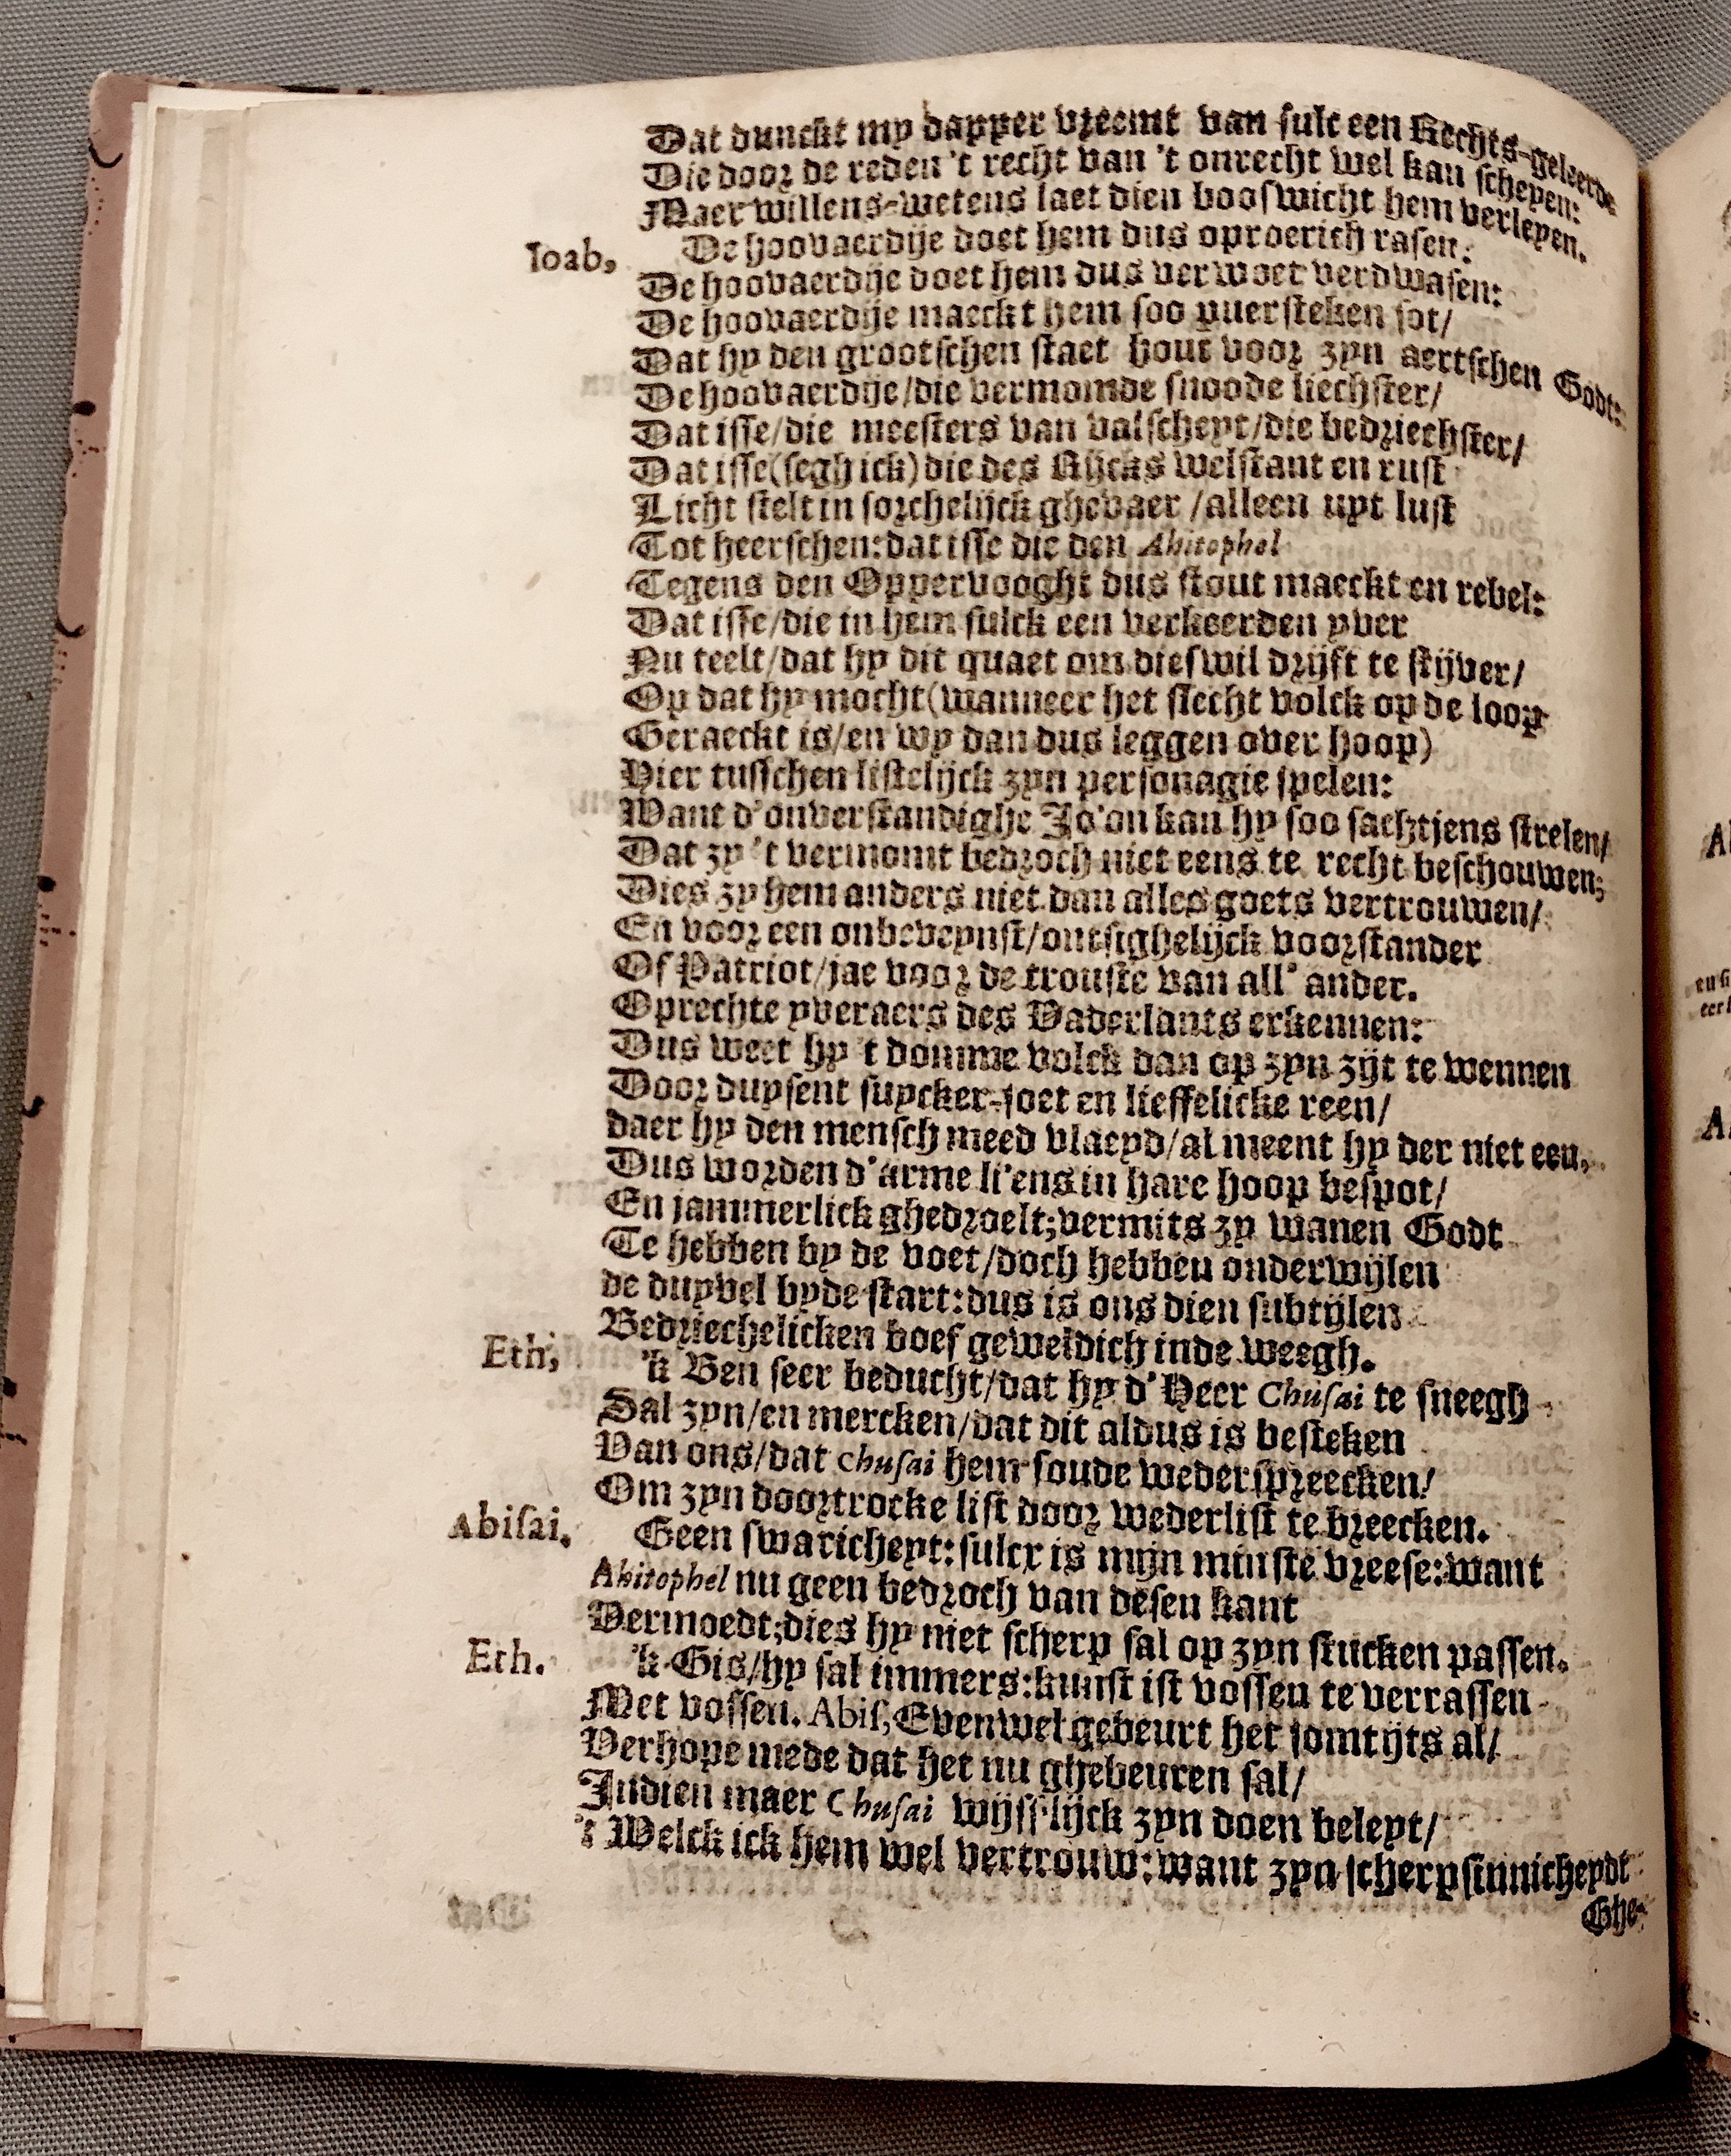 Dat dunckt my dapper vreemt van sulc een Rechts-geleerde
Die door de reden 't recht van 't onrecht wel kan scheyen:
Maer willens-wetens laet dien booswicht hem verleyen.
Ioab, De hoovaerdije doet hem dus oproerich rasen:
De hoovaerdije doet hem dus verwoet verdwasen:
De hoovaerdije maeckt hem soo puersteken sot/
Dat hy den grootschen staet hout voor zyn aertschen Godt:
De hoovaerdije/die vermomde snoode liechster/
Dat isse/die meesters van valscheyt/die bedriechster/
Dat isse(segh ick)die des Rijcks welstant en rust
Licht stelt in sorchelijck ghevaer/alleen uyt lust
Tot heerschen:dat isse die den Ahitophel
Tegens den Oppervooght dus stout maeckt en rebel:
Dat isse/die in hem sulck een verkeerden yver
Nu teelt/dat hy dit quaet om dieswil drijft te stijver/
Op dat hy mocht(wanneer het slecht volck op de loop
Geraeckt is/en wy dan dus leggen over hoop)
Hier tusschen listelijck zyn personagie spelen:
Want d'onverstandighe Jo'on kan hy soo sachtjens strelen/
Dat zy 't vermomt bedroch niet eens te recht beschouwen;
Dies zy hem anders niet dan alles goets vertrouwen/
En voor een onbeveynst/ontsighelijck voorstander
Of Patriot/jae voor de trouste van all' ander.
Oprechte yveraers des Vaderlants erkennen:
Dus weet hy 't domme volck dan op zyn zijt te wennen
Door duysent suycker-soet en lieffelicke reen/
daer hy den mensch meed vlaeyd/al meent hy der niet een.
Dus worden d'arme li'ens in hare hoop bespot/
En jammerlick ghedroelt;vermits zy wanen Godt
Te hebben by de voet/doch hebben onderwijlen
de duyvel by de start:dus is ons dien subtijlen
Bedriechelicken boef geweldich inde weegh.
Eth, 'k Ben seer beducht/dat hy d'Heer Chusai te sneegh
Sal zyn/en mercken/dat dit aldus is besteken
Van ons/dat Chusai hem soude wederspreecken/
Om zyn doortrocke list door wederlist te breecken.
Abisai. Geen swaricheyt:sulcx is mijn minste vreese:want
Ahitophel nu geen bedroch van desen kant
Vermoedt;dies hy niet scherp sal op zyn stucken passen.
Eth. 'k Gis/hy sal immers:kunst ist vossen te verrassen
Met vossen. Abis, Evenwel gebeurt het somtijts al/
Verhope mede dat het nu ghebeuren sal/
Indien maer Chusai wijsslijck zyn doen beleyt/
't Welck ick hem wel vertrouw:want zyn scherpsinnicheydt
Ghe-